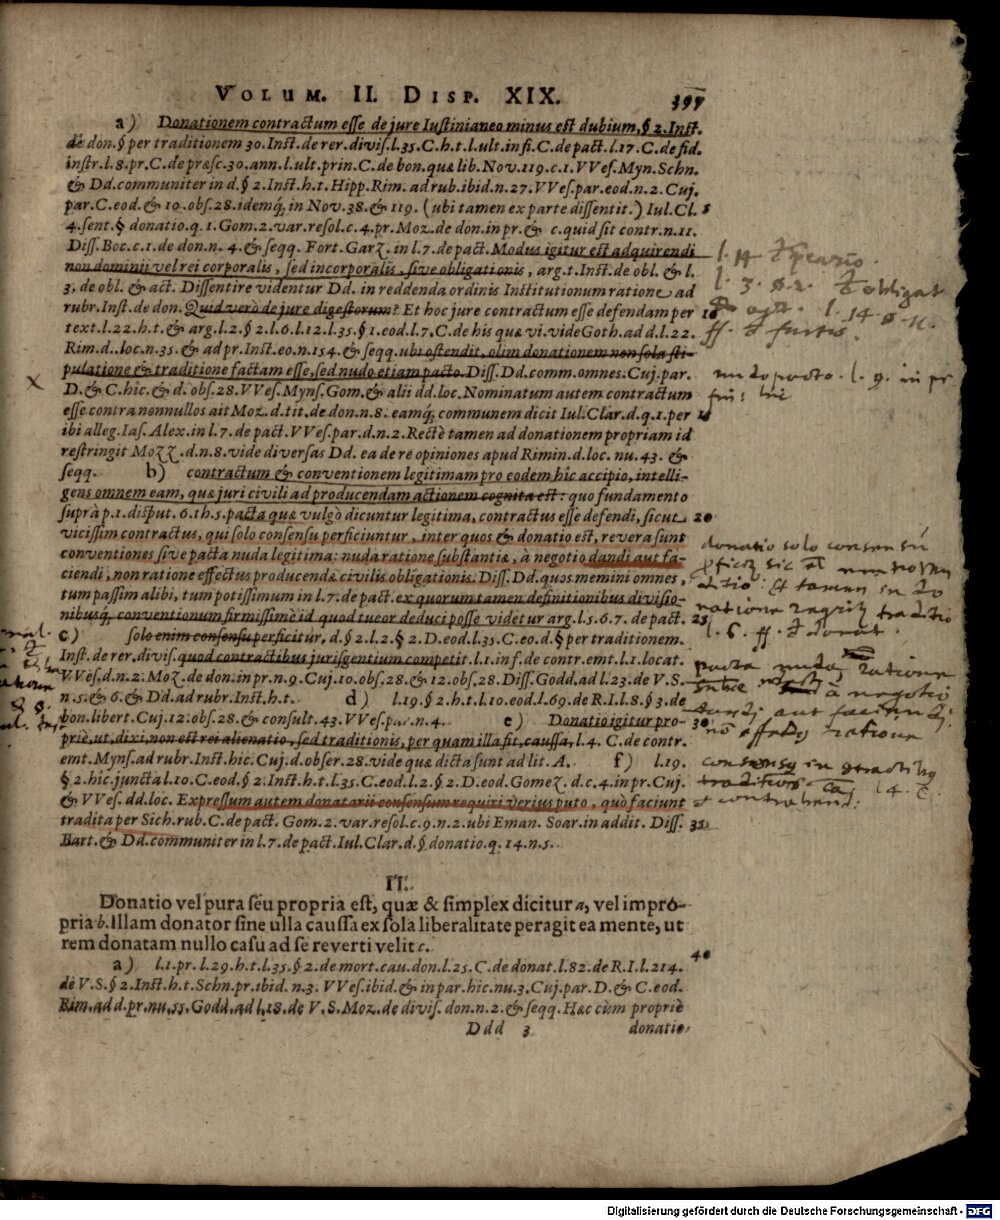 VOLUM. II. DISP. XIX. 397
a) Donationem contractum esse de jure Iustinianeo minus est dubium, § 2. Inst.
de don. § per traditionem 30. Inst. de rer. divis. l. 35. C. h. t. l. ult. in fi. C. de pact. l. 17. C. de fid.
instr. l. 8. pr. C. de præsc. 30. ann. l. ult. prin. C. de bon. quæ lib. Nov. 119. c. 1. VVes. Myn. Schn.
& Dd. communiter in d. § 2. Inst. h. t. Hipp. Rim. ad rub. ibid. n. 27. VVes. par. eod. n. 2. Cuj.
par. C. eod. & 19. obs. 28. idemq́, in Nov. 38. & 119. (ubi tamen ex parte dissentit.) Iul. Cl. 5
4. sent. § donatio. q. 1. Gom. 2. var. resol. c. 4. pr. Moz. de don. in pr. & c. quid sit contr. n. 11.
Diss. Boc. c. 1. de don. n. 4. & seqq. Fort. Garz. in l. 7. de pact. Modus igitur est adquirendi
non dominii vel rei corporalis, sed incorporalis, sive obligationis, arg. t. Inst. de obl. & l.
3. de obl. & act. Dissentire videntur Dd. in reddenda ordinis Institutionum ratione ad
rubr. Inst. de don. Quid verò de jure digestorum? Et hoc jure contractum esse defendam per 10
text. l. 22. h. t. & arg. l. 2. § 2. l. 6. l. 12. l. 35. § 1. eod. l. 7. C. de his quæ vi. vide Goth. ad d. l. 22.
Rim. d. loc. n. 35. & ad pr. Inst. eo. n. 154. & seqq. ubi ostendit, olim donationem non sola sti-
pulatione & traditione factam esse, sed nudo etiam pacto. Diss. Dd. comm. omnes. Cuj. par.
D. & C. hic. & d. obs. 28. VVes. Myns. Gom. & alii dd. loc. Nominatum autem contractum
esse contra nonnullos ait Moz. d. tit. de don. n. 8. eamq́; communem dicit Iul. Clar. d. q. 1. per 15
ibi alleg. Ias. Alex. in l. 7. de pact. VVes. par. d. n. 2. Rectè tamen ad donationem propriam id
restringit Mozz. d. n. 8. vide diversas Dd. ea de re opiniones apud Rimin. d. loc. nu. 43. &
seqq. b) contractum & conventionem legitimam pro eodem hîc accipio, intelli-
gens omnem eam, quæ juri civili ad producendam actionem cognita est: quo fundamento
suprà p. 1. disput. 6. th. 5. pacta quæ vulgò dicuntur legitima, contractus esse defendi, sicut 20
vicissim contractus, qui solo consensu perficiuntur, inter quos & donatio est, revera sunt
conventiones sive pacta nuda legitima: nuda ratione substantiæ, à negotio dandi aut fa-
ciendi, non ratione effectus producendæ civilis obligationis. Diss. Dd. quos memini omnes,
tum passim alibi, tum potissimum in l. 7. de pact. ex quorum tamen definitionibus divisio-
nibusq́, conventionum firmissimè id quod tueor deduci posse videtur arg. l. 5. 6. 7. de pact. 25
c) solo enim consensu perficitur, d. § 2. l. 2. § 2. D. eod. l. 35. C. eo. d. § per traditionem.
Inst. de rer. divis. quod contractibus jurisgentium competit. l. 1. in f. de contr. emt. l. 1. locat.
VVes. d. n. 2. Moz. de don. in pr. n. 9. Cuj. 10. obs. 28. & 12. obs. 28. Diss. Godd. ad l. 23. de V. S.
n. 5. & 6. & Dd. ad rubr. Inst. h. t. d) l. 19. § 2. h. t. l. 10. eod. l. 69. de R. I. l. 8. § 3. de
bon. libert. Cuj. 12. obs. 28. & consult. 43. VVes. par. n. 4. e) Donatio igitur pro- 30
priè, ut, dixi, non est rei alienatio, sed traditionis, per quam illa fit, caussa, l. 4. C. de contr.
emt. Myns. ad rubr. Inst. hic. Cuj. d. obser. 28. vide quæ dicta sunt ad lit. A. f) l. 19.
§ 2. hic. juncta l. 10. C. eod. § 2. Inst. h. t. l. 35. C. eod. l. 2. § 2. D. eod. Gomez. d. c. 4. in pr. Cuj.
& VVes. dd. loc. Expressum autem donatarii consensum requiri verius puto, quò faciunt
tradita per Sich. rub. C. de pact. Gom. 2. var. resol. c. 9. n. 2. ubi Eman. Soar. in addit. Diss. 35
Bart. & Dd. communiter in l. 7. de pact. Iul. Clar. d. § donatio. q. 14. n. 5.
II.
Donatio vel pura seu propria est, quæ & simplex dicitur a, vel impro-
pria b. Illam donator sine ulla caussa ex sola liberalitate peragit ea mente, ut
rem donatam nullo casu ad se reverti velit c.
40
a) l. 1. pr. l. 29. h. t. l. 35. § 2. de mort. cau. don. l. 25. C. de donat. l. 82. de R. I. l. 214.
de V. S. § 2. Inst. h. t. Schn. pr. ibid. n. 3. VVes. ibid. & in par. hic. nu. 3. Cuj. par. D. & C. eod.
Rim. ad d. pr. nu. 55. Godd. ad l. 18. de V. S. Moz. de divis. don. n. 2. & seqq. Hæc cùm propriè
Ddd 3 donatio
l. 3.
obligat
l. 14
nudo pacto. l. 9. in pr
donatio solo consensu
pacta nuda, ratione
à negotio
dandi aut faciendi,
ratione
Digitalisierung gefördert durch die Deutsche Forschungsgemeinschaft - DFG